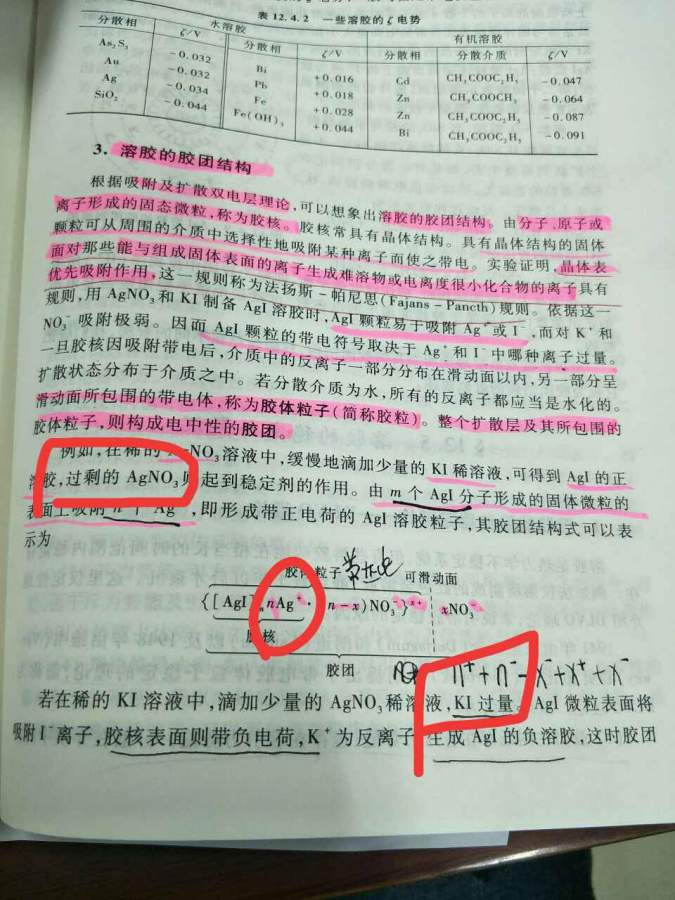 表12.4.2 一些溶胶的ζ电势
分散相 水溶胶 有机溶胶
ζ/V 分散相 ζ/V 分散相 分散介质 ζ/V
As₂S₃ −0.032 Bi +0.016 Cd CH₃COOC₂H₅ −0.047
Au −0.032 Pb +0.018 Zn CH₃COOCH₃ −0.064
Ag −0.034 Fe +0.028 Zn CH₃COOC₂H₅ −0.087
SiO₂ −0.044 Fe(OH)₃ +0.044 Bi CH₃COOC₂H₅ −0.091
3. 溶胶的胶团结构
根据吸附及扩散双电层理论,可以想象出溶胶的胶团结构。由分子、原子或
离子形成的固态微粒,称为胶核。胶核常具有晶体结构。具有晶体结构的固体
颗粒可从周围的介质中选择性地吸附某种离子而使之带电。实验证明,晶体表
面对那些能与组成固体表面的离子生成难溶物或电离度很小化合物的离子具有
优先吸附作用,这一规则称为法扬斯–帕尼思(Fajans–Pancth)规则。依据这一
规则,用 AgNO₃ 和 KI 制备 AgI 溶胶时,AgI 颗粒易于吸附 Ag⁺ 或 I⁻,而对 K⁺ 和
NO₃⁻ 吸附极弱。因而 AgI 颗粒的带电符号取决于 Ag⁺ 和 I⁻ 中哪种离子过量。
一旦胶核因吸附带电后,介质中的反离子一部分分布在滑动面以内,另一部分呈
扩散状态分布于介质之中。若分散介质为水,所有的反离子都应当是水化的。
滑动面所包围的带电体,称为胶体粒子(简称胶粒)。整个扩散层及其所包围的
胶体粒子,则构成电中性的胶团。
例如,在稀的 NO₃ 溶液中,缓慢地滴加少量的 KI 稀溶液,可得到 AgI 的正
溶胶,过剩的 AgNO₃ 起到稳定剂的作用。由 m 个 AgI 分子形成的固体微粒的
表面上吸附 n 个 Ag⁺,即形成带正电荷的 AgI 溶胶粒子,其胶团结构式可以表
示为
胶体粒子 带正电 可滑动面
{[AgI]ₘnAg⁺·(n−x)NO₃⁻}ˣ⁺ xNO₃⁻
胶核
胶团 n⁺+n⁻−x⁻+x⁺+x⁻
若在稀的 KI 溶液中,滴加少量的 AgNO₃ 稀溶液,KI 过量。AgI 微粒表面将
吸附 I⁻ 离子,胶核表面则带负电荷,K⁺ 为反离子,生成 AgI 的负溶胶,这时胶团